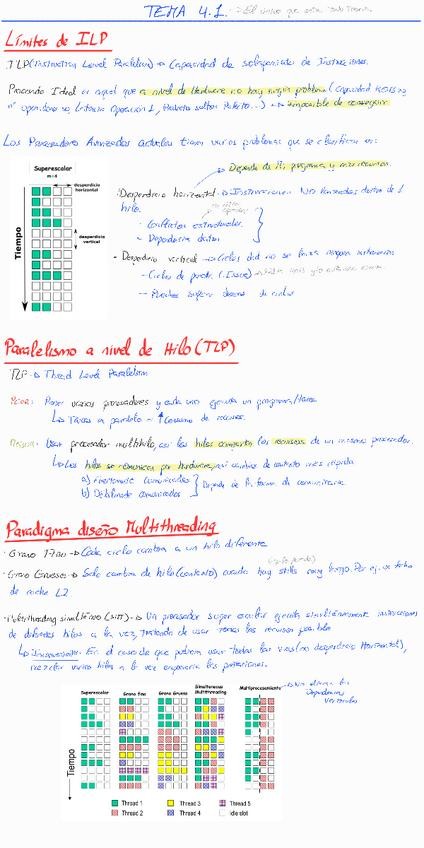 TEMA 4.1.
Límites de ILP
ILP (Instruction Level Paralelism) → Capacidad de solapamiento de Instrucciones.
Procesador Ideal es aquel que a nivel de Hardware no hay ningún problema (capacidad
nº operandos, latencia Operación 1, → imposible de conseguir
Los Procesadores Avanzados actuales tienen varios problemas que se clasifican en:
→ Depende de
Superescalar
m=4
desperdicio horizontal
desperdicio vertical
Tiempo
· Desperdicio horizontal → Instrucciones No lanzadas dentro de 1
hilo.
- Conflictos estructurales.
- Dependencia datos
· Desperdicio vertical → Ciclos del no se lanza ninguna instrucción
- Ciclos de (Issue)
- Pueden
Paralelismo a nivel de Hilo (TLP)
TLP → Thread Level Paralelism
Tener varios procesadores y cada uno ejecuta un programa/
↳ Tareas en paralelo → ↑ Consumo de recursos.
Usar procesador multihilo, así los hilos comparten los recursos de un mismo procesador.
↳ Los hilos se comunican por Hardware, así cambio de contexto más rápido
a) Fuertemente comunicados
b) Débilmente comunicados
Depende de la forma de comunicarse
Paradigma diseño Multithreading
· Grano Fino → Cada ciclo cambia a un hilo diferente
· Grano Grueso → Solo cambia de hilo (contexto) cuando hay stalls muy largo. Por ej. un fallo
de cache L2
· Multithreading simultáneo (SMT) → Un procesador super escalar ejecuta simultáneamente instrucciones
de diferentes hilos a la vez, tratando de usar todos los recursos posibles
↳ En el caso de que podamos usar todas las vías (no desperdicio Horizontal),
mezclar varios hilos a la vez empeoraría las prestaciones.
→ No elimina las
Dependencias
Verticales
Superescalar
Grano fino
Grano Grueso
Simultaneous Multithreading
Multiprocesamiento
Tiempo
Thread 1
Thread 3
Thread 5
Thread 2
Thread 4
Idle slot